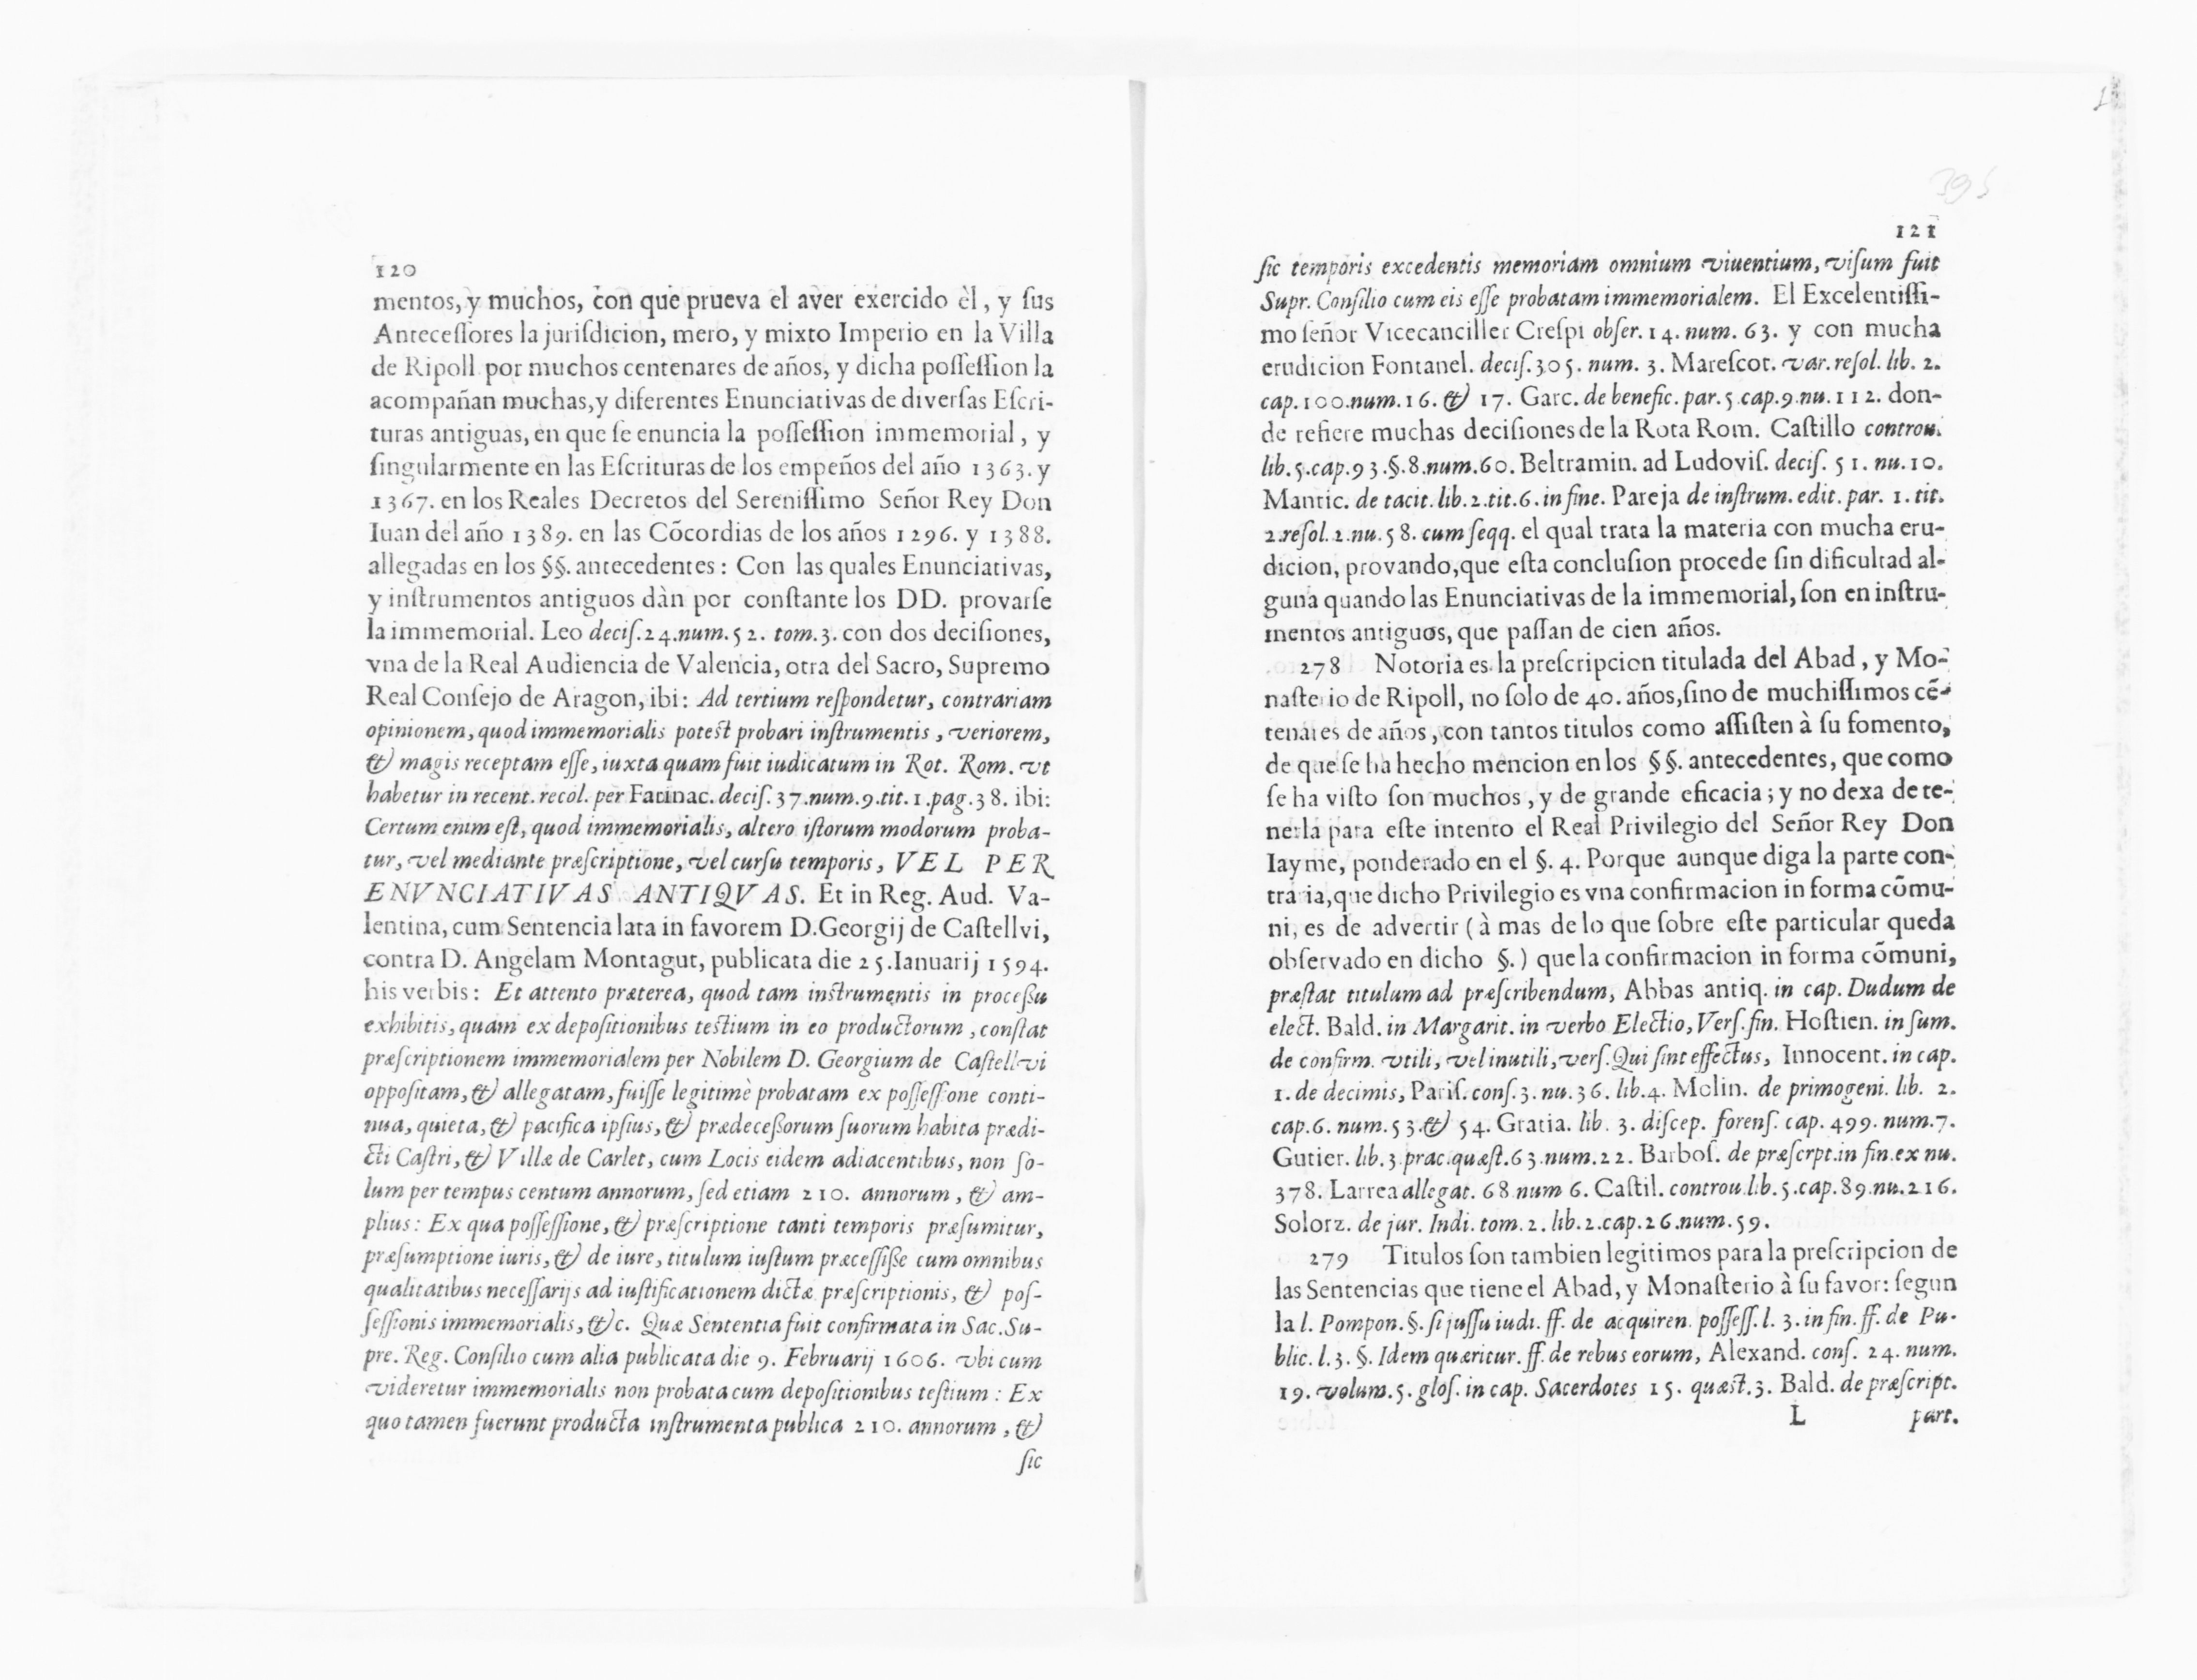 120
mentos, y muchos, con que prueva el aver exercido èl, y ſus
Anteceſſores la juriſdicion, mero, y mixto Imperio en la Villa
de Ripoll por muchos centenares de años, y dicha poſſeſſion la
acompañan muchas, y diferentes Enunciativas de diverſas Eſcri-
turas antiguas, en que ſe enuncia la poſſeſſion immemorial, y
ſingularmente en las Eſcrituras de los empeños del año 1363. y
1367. en los Reales Decretos del Sereniſſimo Señor Rey Don
Iuan del año 1389. en las Cõcordias de los años 1296. y 1388.
allegadas en los §§. antecedentes: Con las quales Enunciativas,
y inſtrumentos antiguos dàn por conſtante los DD. provarſe
la immemorial. Leo deciſ. 24. num. 52. tom. 3. con dos deciſiones,
vna de la Real Audiencia de Valencia, otra del Sacro, Supremo
Real Conſejo de Aragon, ibi: Ad tertium reſpondetur, contrariam
opinionem, quod immemorialis poteſt probari inſtrumentis, veriorem,
& magis receptam eſſe, iuxta quam fuit iudicatum in Rot. Rom. vt
habetur in recent. recol. per Farinac. deciſ. 37. num. 9. tit. 1. pag. 38. ibi:
Certum enim eſt, quod immemorialis, altero iſtorum modorum proba-
tur, vel mediante præſcriptione, vel curſu temporis, VEL PER
ENVNCIATIVAS ANTIQVAS. Et in Reg. Aud. Va-
lentina, cum Sentencia lata in favorem D. Georgij de Caſtellvi,
contra D. Angelam Montagut, publicata die 25. Ianuarij 1594.
his verbis: Et attento præterea, quod tam inſtrumentis in proceſsu
exhibitis, quam ex depoſitionibus teſtium in eo productorum, conſtat
præſcriptionem immemorialem per Nobilem D. Georgium de Caſtellvi
oppoſitam, & allegatam, fuiſſe legitimè probatam ex poſſeſſione conti-
nua, quieta, & pacifica ipſius, & prædeceſsorum ſuorum habita prædi-
cti Caſtri, & Villæ de Carlet, cum Locis eidem adiacentibus, non ſo-
lum per tempus centum annorum, ſed etiam 210. annorum, & am-
plius: Ex qua poſſeſſione, & præſcriptione tanti temporis præſumitur,
præſumptione iuris, & de iure, titulum iuſtum præceſſiſse cum omnibus
qualitatibus neceſſarijs ad iuſtificationem dictæ præſcriptionis, & poſ-
ſeſſionis immemorialis, &c. Quæ Sententia fuit confirmata in Sac. Su-
pre. Reg. Conſilio cum alia publicata die 9. Februarij 1606. vbi cum
videretur immemorialis non probata cum depoſitionibus teſtium: Ex
quo tamen fuerunt producta inſtrumenta publica 210. annorum, &
ſic
395
121
ſic temporis excedentis memoriam omnium viuentium, viſum fuit
Supr. Conſilio cum eis eſſe probatam immemorialem. El Excelentiſſi-
mo ſeñor Vicecanciller Creſpi obſer. 14. num. 63. y con mucha
erudicion Fontanel. deciſ. 305. num. 3. Mareſcot. var. reſol. lib. 2.
cap. 100. num. 16. & 17. Garc. de benefic. par. 5. cap. 9. nu. 112. don-
de refiere muchas deciſiones de la Rota Rom. Caſtillo controu.
lib. 5. cap. 93. §. 8. num. 60. Beltramin. ad Ludoviſ. deciſ. 51. nu. 10.
Mantic. de tacit. lib. 2. tit. 6. in fine. Pareja de inſtrum. edit. par. 1. tit.
2. reſol. 2. nu. 58. cum ſeqq. el qual trata la materia con mucha eru-
dicion, provando, que eſta concluſion procede ſin dificultad al-
guna quando las Enunciativas de la immemorial, ſon en inſtru-
mentos antiguos, que paſſan de cien años.
278 Notoria es la preſcripcion titulada del Abad, y Mo-
naſterio de Ripoll, no ſolo de 40. años, ſino de muchiſſimos cẽ-
tenares de años, con tantos titulos como aſſiſten à ſu fomento,
de que ſe ha hecho mencion en los §§. antecedentes, que como
ſe ha viſto ſon muchos, y de grande eficacia; y no dexa de te-
nerla para eſte intento el Real Privilegio del Señor Rey Don
Iayme, ponderado en el §. 4. Porque aunque diga la parte con-
traria, que dicho Privilegio es vna confirmacion in forma cõmu-
ni, es de advertir (à mas de lo que ſobre eſte particular queda
obſervado en dicho §.) que la confirmacion in forma cõmuni,
præſtat titulum ad præſcribendum, Abbas antiq. in cap. Dudum de
elect. Bald. in Margarit. in verbo Electio, Verſ. fin. Hoſtien. in ſum.
de confirm. vtili, vel inutili, verſ. Qui ſint effectus, Innocent. in cap.
1. de decimis, Pariſ. conſ. 3. nu. 36. lib. 4. Molin. de primogeni. lib. 2.
cap. 6. num. 53. & 54. Gratia. lib. 3. diſcep. forenſ. cap. 499. num. 7.
Gutier. lib. 3. prac. quæſt. 63. num. 22. Barboſ. de præſcrpt. in fin. ex nu.
378. Larrea allegat. 68. num 6. Caſtil. controu. lib. 5. cap. 89. nu. 216.
Solorz. de jur. Indi. tom. 2. lib. 2. cap. 26. num. 59.
279 Titulos ſon tambien legitimos para la preſcripcion de
las Sentencias que tiene el Abad, y Monaſterio à ſu favor: ſegun
la l. Pompon. §. ſi juſſu iudi. ff. de acquiren. poſſeſſ. l. 3. in fin. ff. de Pu-
blic. l. 3. §. Idem quæritur. ff. de rebus eorum, Alexand. conſ. 24. num.
19. volum. 5. gloſ. in cap. Sacerdotes 15. quæſt. 3. Bald. de præſcript.
L part.